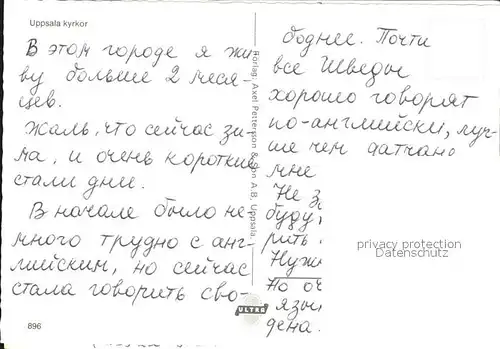 Uppsala kyrkor
В этом городе я жи
ву больше 2 меся-
цев.
Жаль, что сейчас зи-
ма, и очень короткие
стали дни.
В начале было не-
много трудно с анг-
лийским, но сейчас
стала говорить сво-
896
Förlag: Axel Pettersson & Son A.B. Uppsala
ULTRA
боднее. Почти
все Шведы
хорошо говорят
по-английски, луч-
ше чем датчане
мне
Не
буду,
рить
privacy protection
Datenschutz
Но
дена.